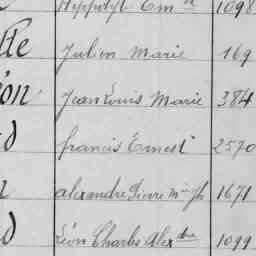 Hyppolyte Em^le 1098
lle Julien Marie 169
ion Jean Louis Marie 384
d francis Ernest 2570
alexandre Pierre M^ie Jh 1671
d Léon Charles Alex^dre 1099